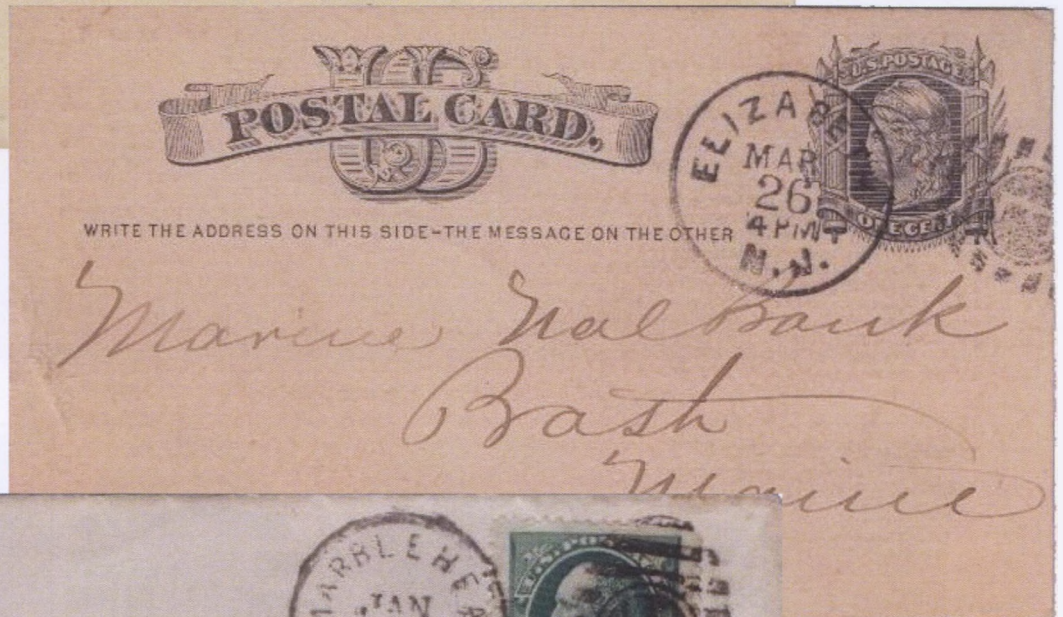 US
POSTAL CARD.
U.S. POSTAGE
ONE CENT
ELIZABE
MAR
26
4 PM
N.J.
WRITE THE ADDRESS ON THIS SIDE-THE MESSAGE ON THE OTHER
Marine Nal Bank
Bath
Maine
MARBLEHEA
JAN
U.S. POS